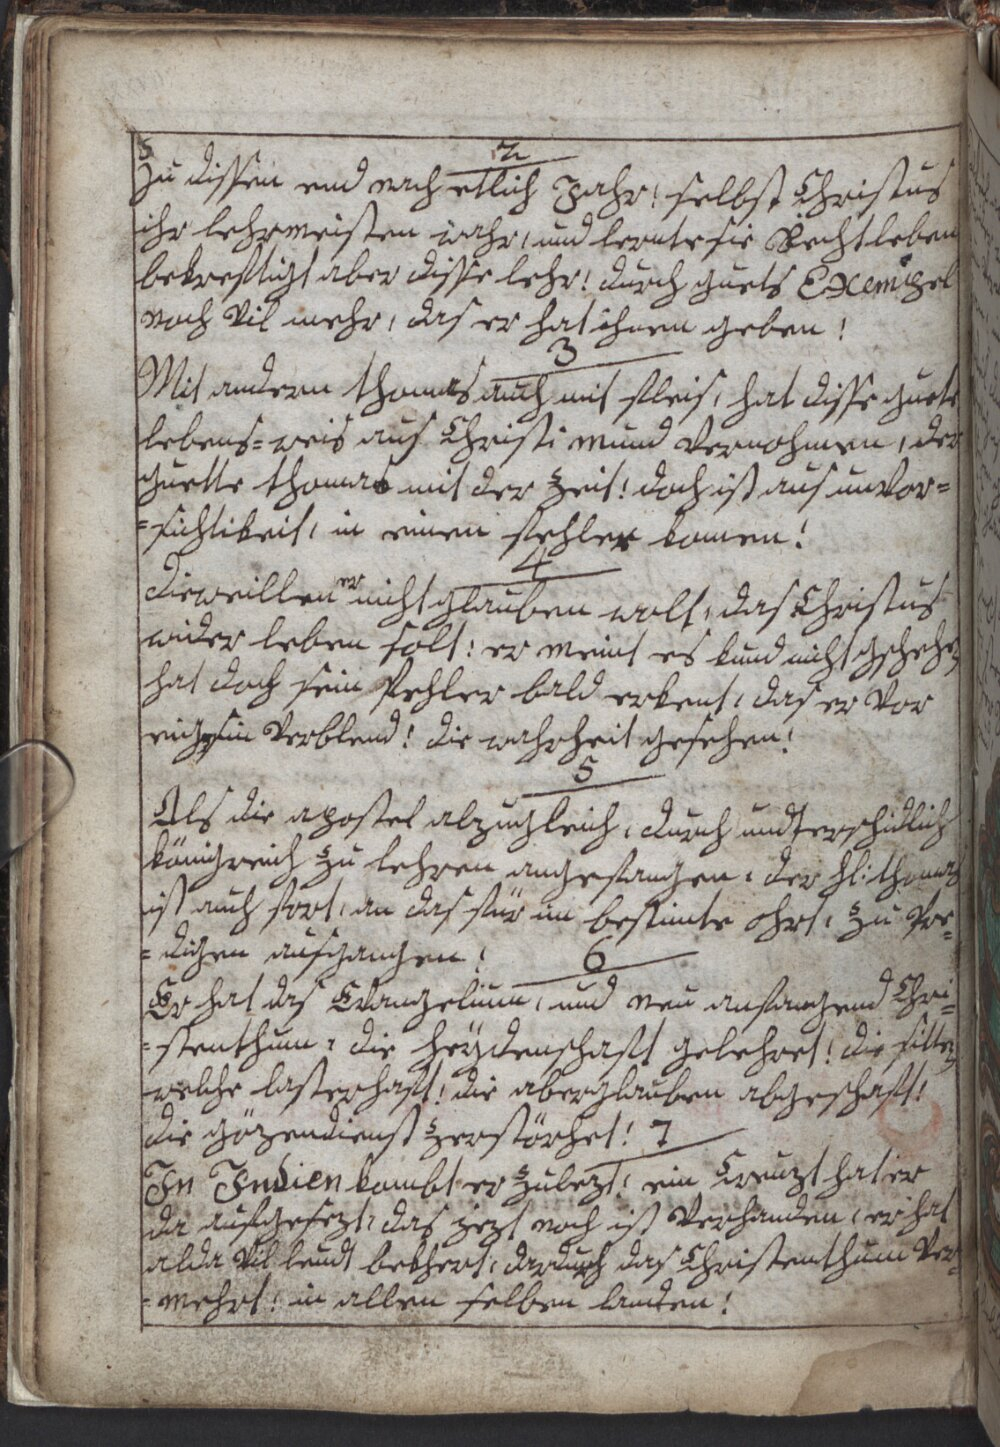 2
Zu dissen end nach etlich Jahr, selbst Christus
ihr lehrmeisten wahr, und lernte sie Recht leben
bekreftigt aber disse lehr! durch guets Exempel
noch Vil mehr, das er hat ihnen geben!
3
Mit andern thomas auch mit fleis, hat disse guete
lebens=weis aus Christi mund Vernohmen, der
guette thomas mit der zeit! doch ist aus unvor=
=sichtikeit, in einen fehler komen!
4
dieweillen er nicht glauben wolt, das Christus
wider leben solt: er meint es kund nicht geschehen
hat doch sein fehler bald erkent, das er Vor
Verblend! die wahrheit gesehen!
5
Als die apostel alzugleich, durch undterschidlich
königreich zu lehren angefangen, der hl: thomas
ist auch fort, an das für im bestimte ohrt, zu Pre=
=digen ausgangen!
6
Er hat das Evangelium, und neu anfangend Chri=
=stenthum, die heydenschaft gelehret! die sitten
welche lasterhaft! die aberglauben abgeschaft!
die gözendienst zerstörhet!
7
In Indien kombt er zulezt, ein Creuzt hat er
da aufgesezt, das jezt noch ist Verhanden, er hat
alda Vil leudt bekhert, dardurch das Christenthum Ver=
=mehrt! in allen selben landen!